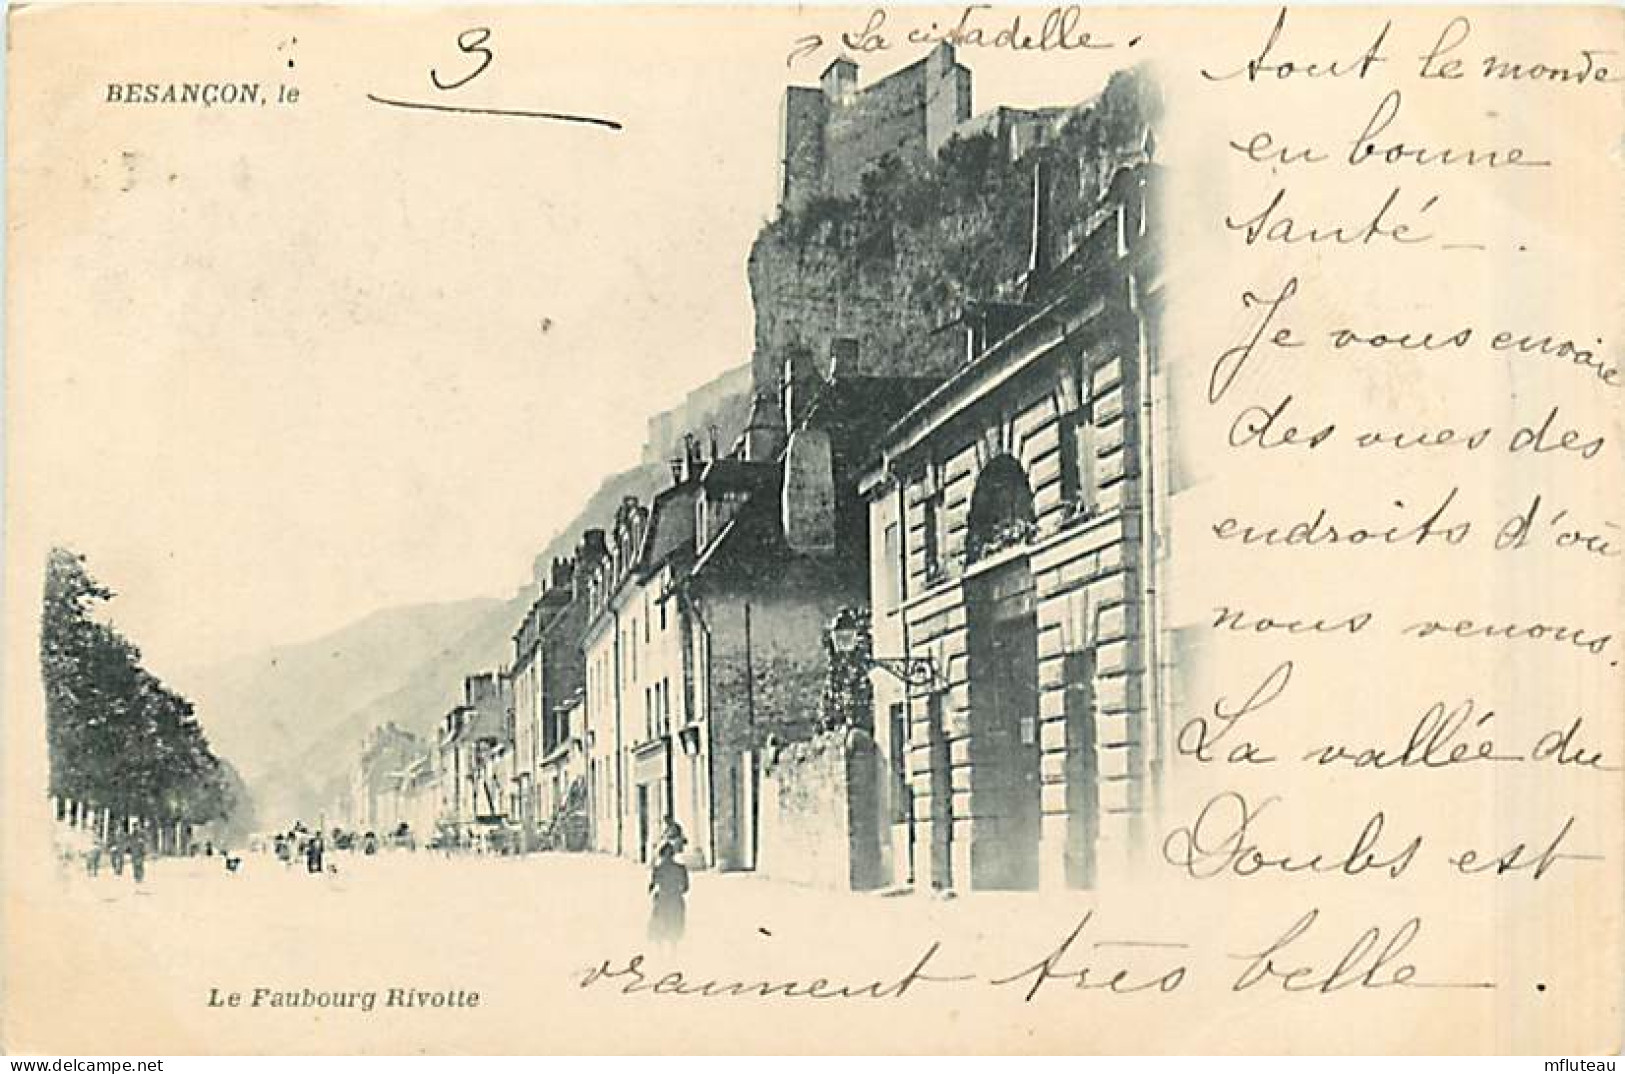 La citadelle.
3
BESANÇON, le
tout le monde
en bonne
santé.
Je vous envoie
des vues des
endroits d'où
nous venons.
La vallée du
Doubs est
vraiment très belle.
Le Faubourg Rivotte
www.delcampe.net
mfluteau